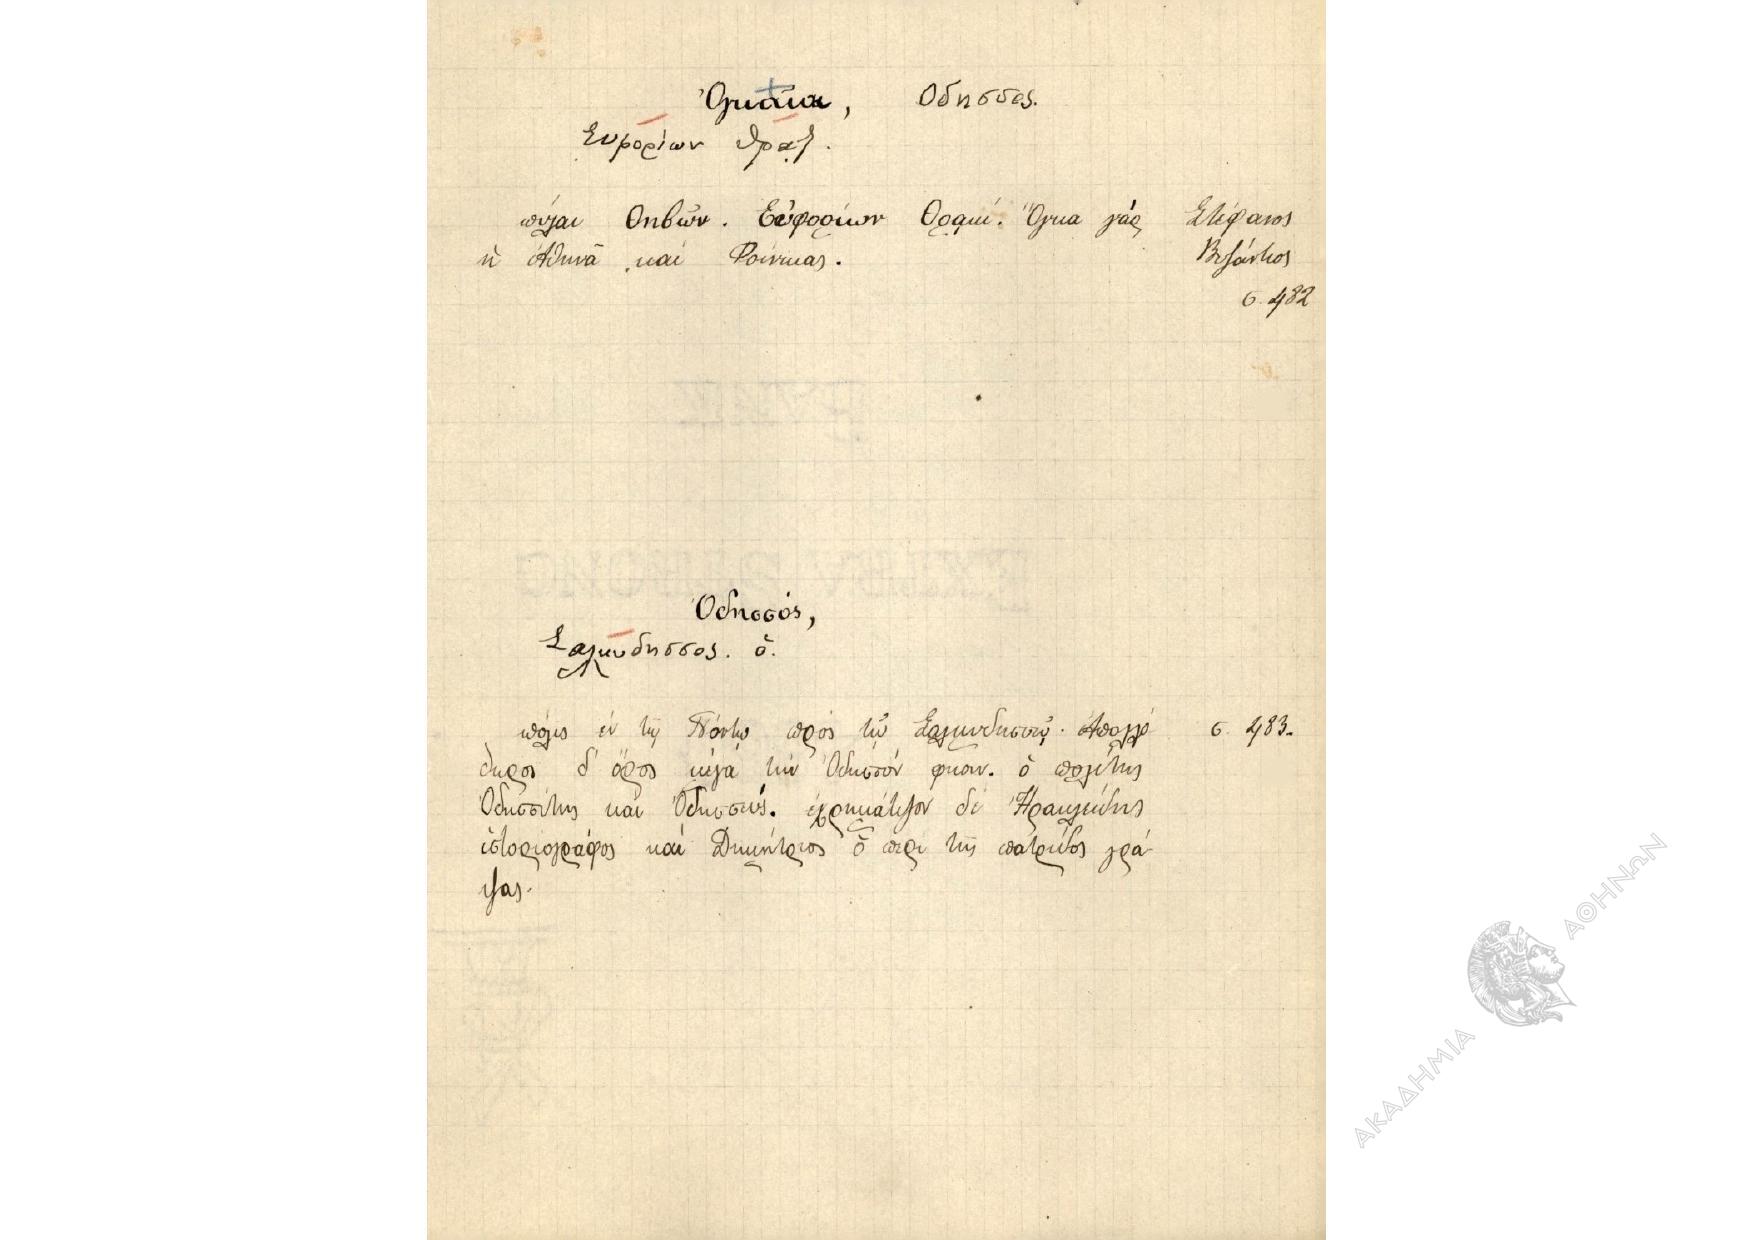 Ὀγκαῖαι, Οδησσος.
Ευφορίων Θραξ.
πύλαι Θηβῶν. Εὐφορίων Θρᾳκί. Ὄγκα γάρ Στέφανος
ἡ Ἀθηνᾶ καί Φοίνικας. Βυζάντιος
σ. 482
Ὀδησσός,
Σαλμυδησσος. ὁ.
πόλις ἐν τῷ Πόντῳ πρὸς τῷ Σαλμυδησσῷ. Ἀπολλό σ. 483.
δωρος δ' ὄρος μέγα τὴν Ὀδησσόν φησιν. ὁ πολίτης
Ὀδησσίτης καὶ Ὀδησσεύς. ἐχρημάτιζον δέ Ἡρακλείδης
ἱστοριογράφος καί Δημήτριος ὁ περί τῆς πατρίδος γρά-
ψας.
ΑΚΑΔΗΜΙΑ ΑΘΗΝΩΝ